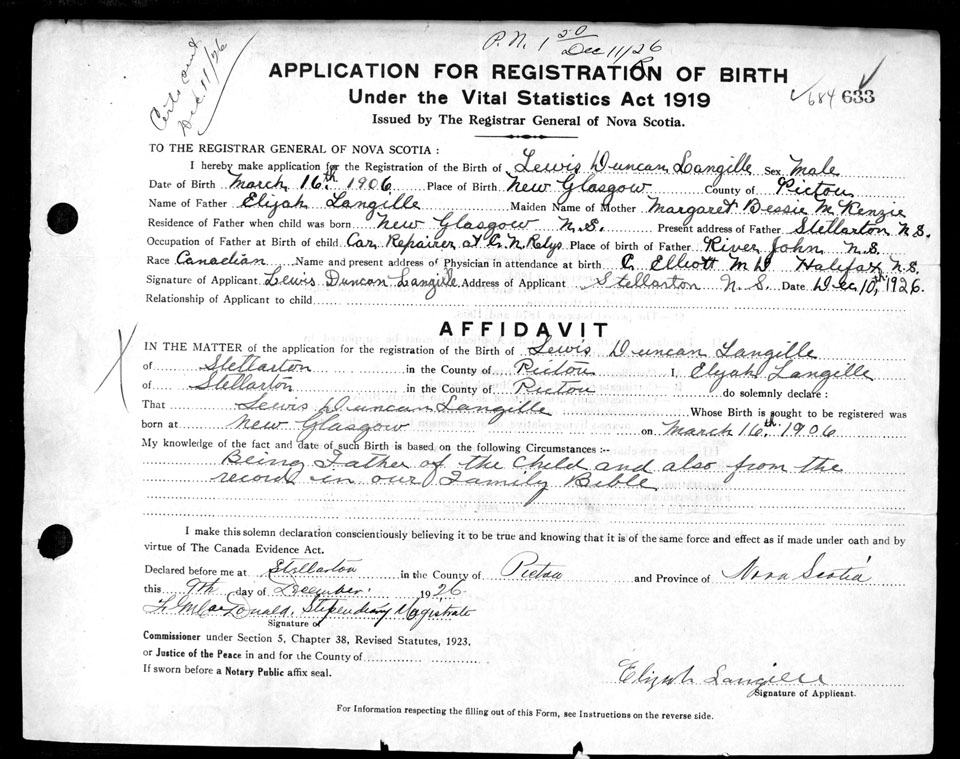 P.N. 1 50
Dec 11/26
Certs
Dec. 11/26
APPLICATION FOR REGISTRATION OF BIRTH
Under the Vital Statistics Act 1919
684 633
Issued by The Registrar General of Nova Scotia.
TO THE REGISTRAR GENERAL OF NOVA SCOTIA :
I hereby make application for the Registration of the Birth of Lewis Duncan Langille Sex Male
Date of Birth March 16th. 1906 Place of Birth New Glasgow County of Pictou
Name of Father Elijah Langille Maiden Name of Mother Margaret Bessie McKenzie
Residence of Father when child was born New Glasgow N.S. Present address of Father Stellarton N.S.
Occupation of Father at Birth of child Car Repairer at C.N. Rlys. Place of birth of Father River John N.S.
Race Canadian Name and present address of Physician in attendance at birth C. Elliott M D Halifax N.S.
Signature of Applicant Lewis Duncan Langille Address of Applicant Stellarton N.S. Date Dec 10th, 1926.
Relationship of Applicant to child
AFFIDAVIT
IN THE MATTER of the application for the registration of the Birth of Lewis Duncan Langille
of Stellarton in the County of Pictou I, Elijah Langille
of Stellarton in the County of Pictou do solemnly declare :
That Lewis Duncan Langille Whose Birth is sought to be registered was
born at New Glasgow on March 16th. 1906
My knowledge of the fact and date of such Birth is based on the following Circumstances :-
Being Father of the Child and also from the
record in our Family Bible
I make this solemn declaration conscientiously believing it to be true and knowing that it is of the same force and effect as if made under oath and by
virtue of The Canada Evidence Act.
Declared before me at Stellarton in the County of Pictou and Province of Nova Scotia
this 9th day of December 1926
MacDonald, Stipendiary Magistrate
Signature of
Commissioner under Section 5, Chapter 38, Revised Statutes, 1923.
or Justice of the Peace in and for the County of
If sworn before a Notary Public affix seal.
Elijah Langille
Signature of Applicant.
For Information respecting the filling out of this Form, see Instructions on the reverse side.